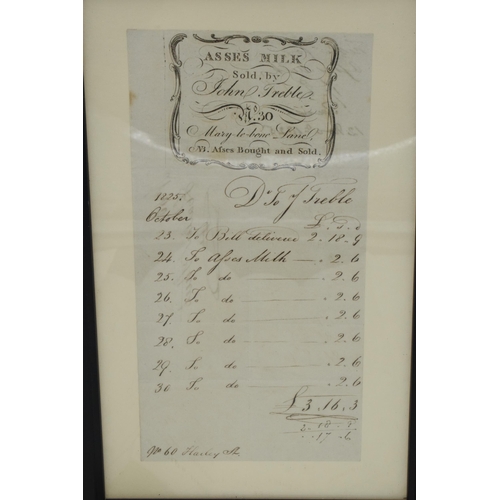 ASSES MILK
Sold, by
John Treble
No. 30
Mary-le-bone Lane,
NB. Asses Bought and Sold.
1825. Dr To J Treble
October £. S. d
23. To Bill delivered 2.18.9
24. To Asses Milk — . 2.6
25. To do — . 2.6
26. To do — . 2.6
27. To do — . 2.6
28. To do — . 2.6
29. To do — . 2.6
30 To do — . 2.6
£3.16.3
2.18.9
. 17.6
No 60 Harley St.